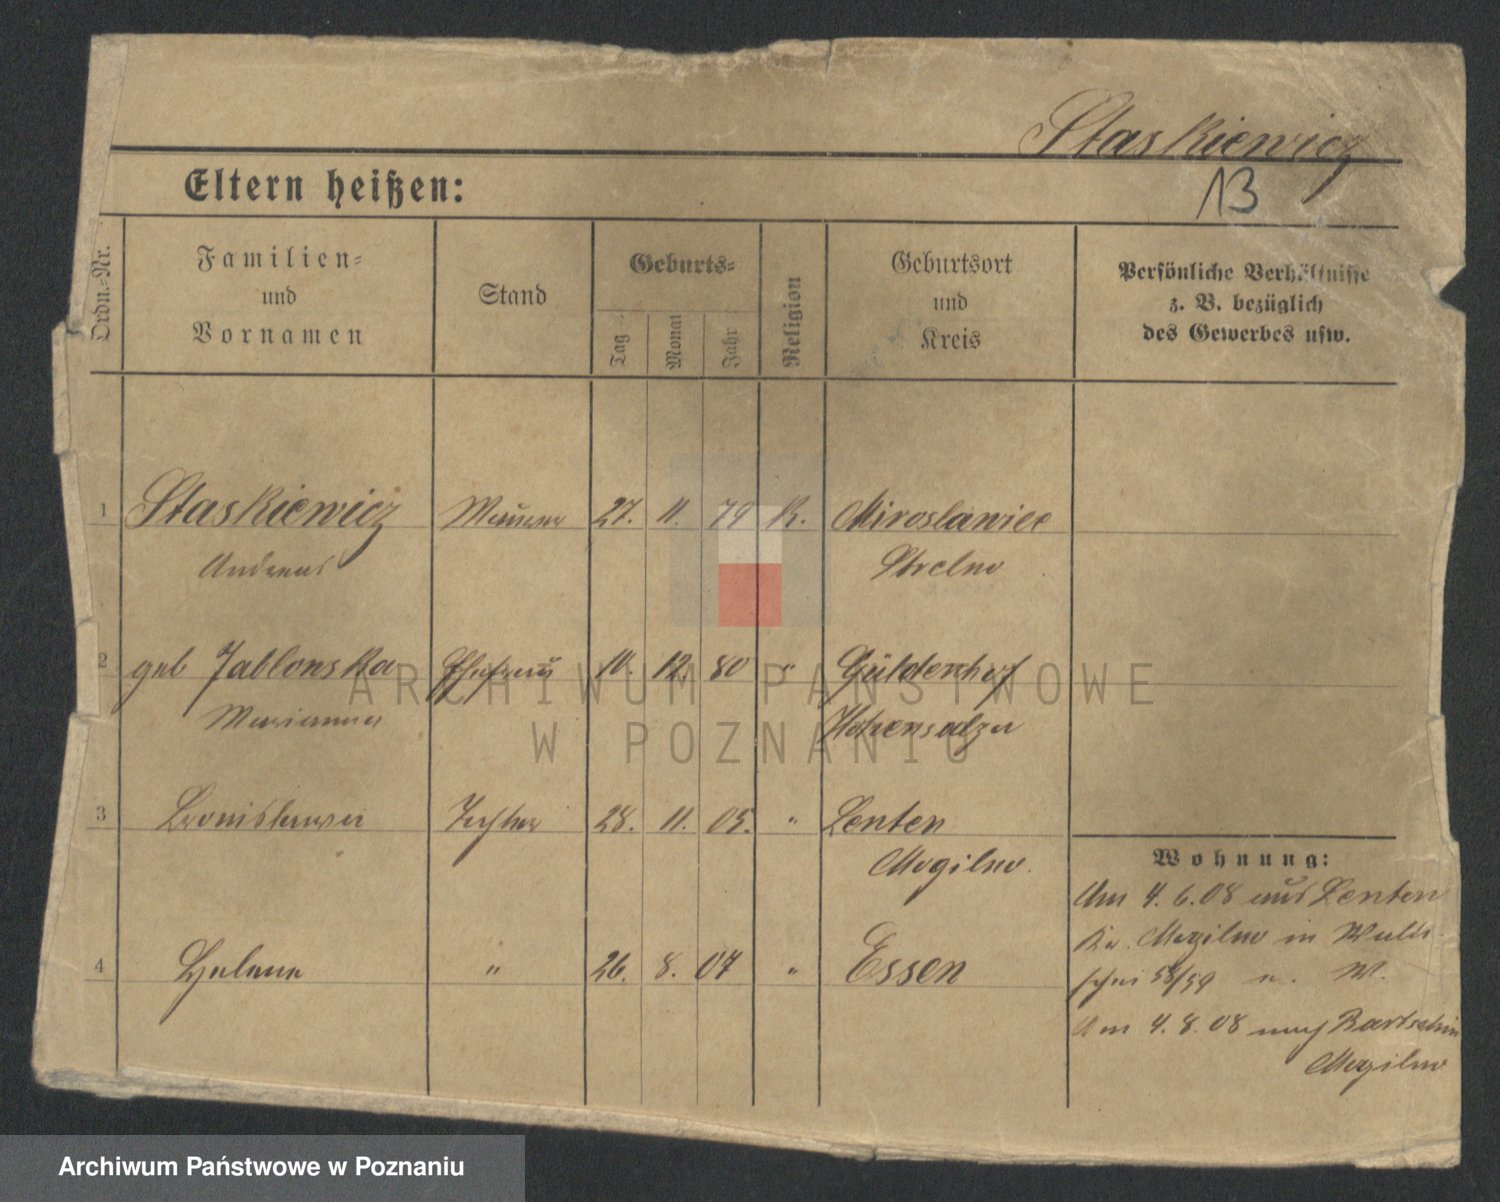 Staskiewicz
Eltern heißen:
13
Ordn.-Nr.
Familien-
und
Vornamen
Stand
Geburts-
Tag
Monat
Jahr
Religion
Geburtsort
und
Kreis
Persönliche Verhältnisse
z. B. bezüglich
des Gewerbes usw.
1 Staskiewicz Maurer 27. 11. 79 K. Miroslawiec
Andreas Strelno
2 geb Jablonska Ehefrau 10. 12. 80 " Güldenhof
Marianna Hohensalza
3 Bronislawa Tochter 28. 11. 05. " Lenten
Mogilno.
4 Helene " 26. 8. 07 " Essen
Wohnung:
Am 4. 6. 08 aus Lenten
Kr. Mogilno in
58/59 W.
Am 4. 8. 08 nach Bartschin
Mogilno
ARCHIWUM PAŃSTWOWE
W POZNANIU
Archiwum Państwowe w Poznaniu